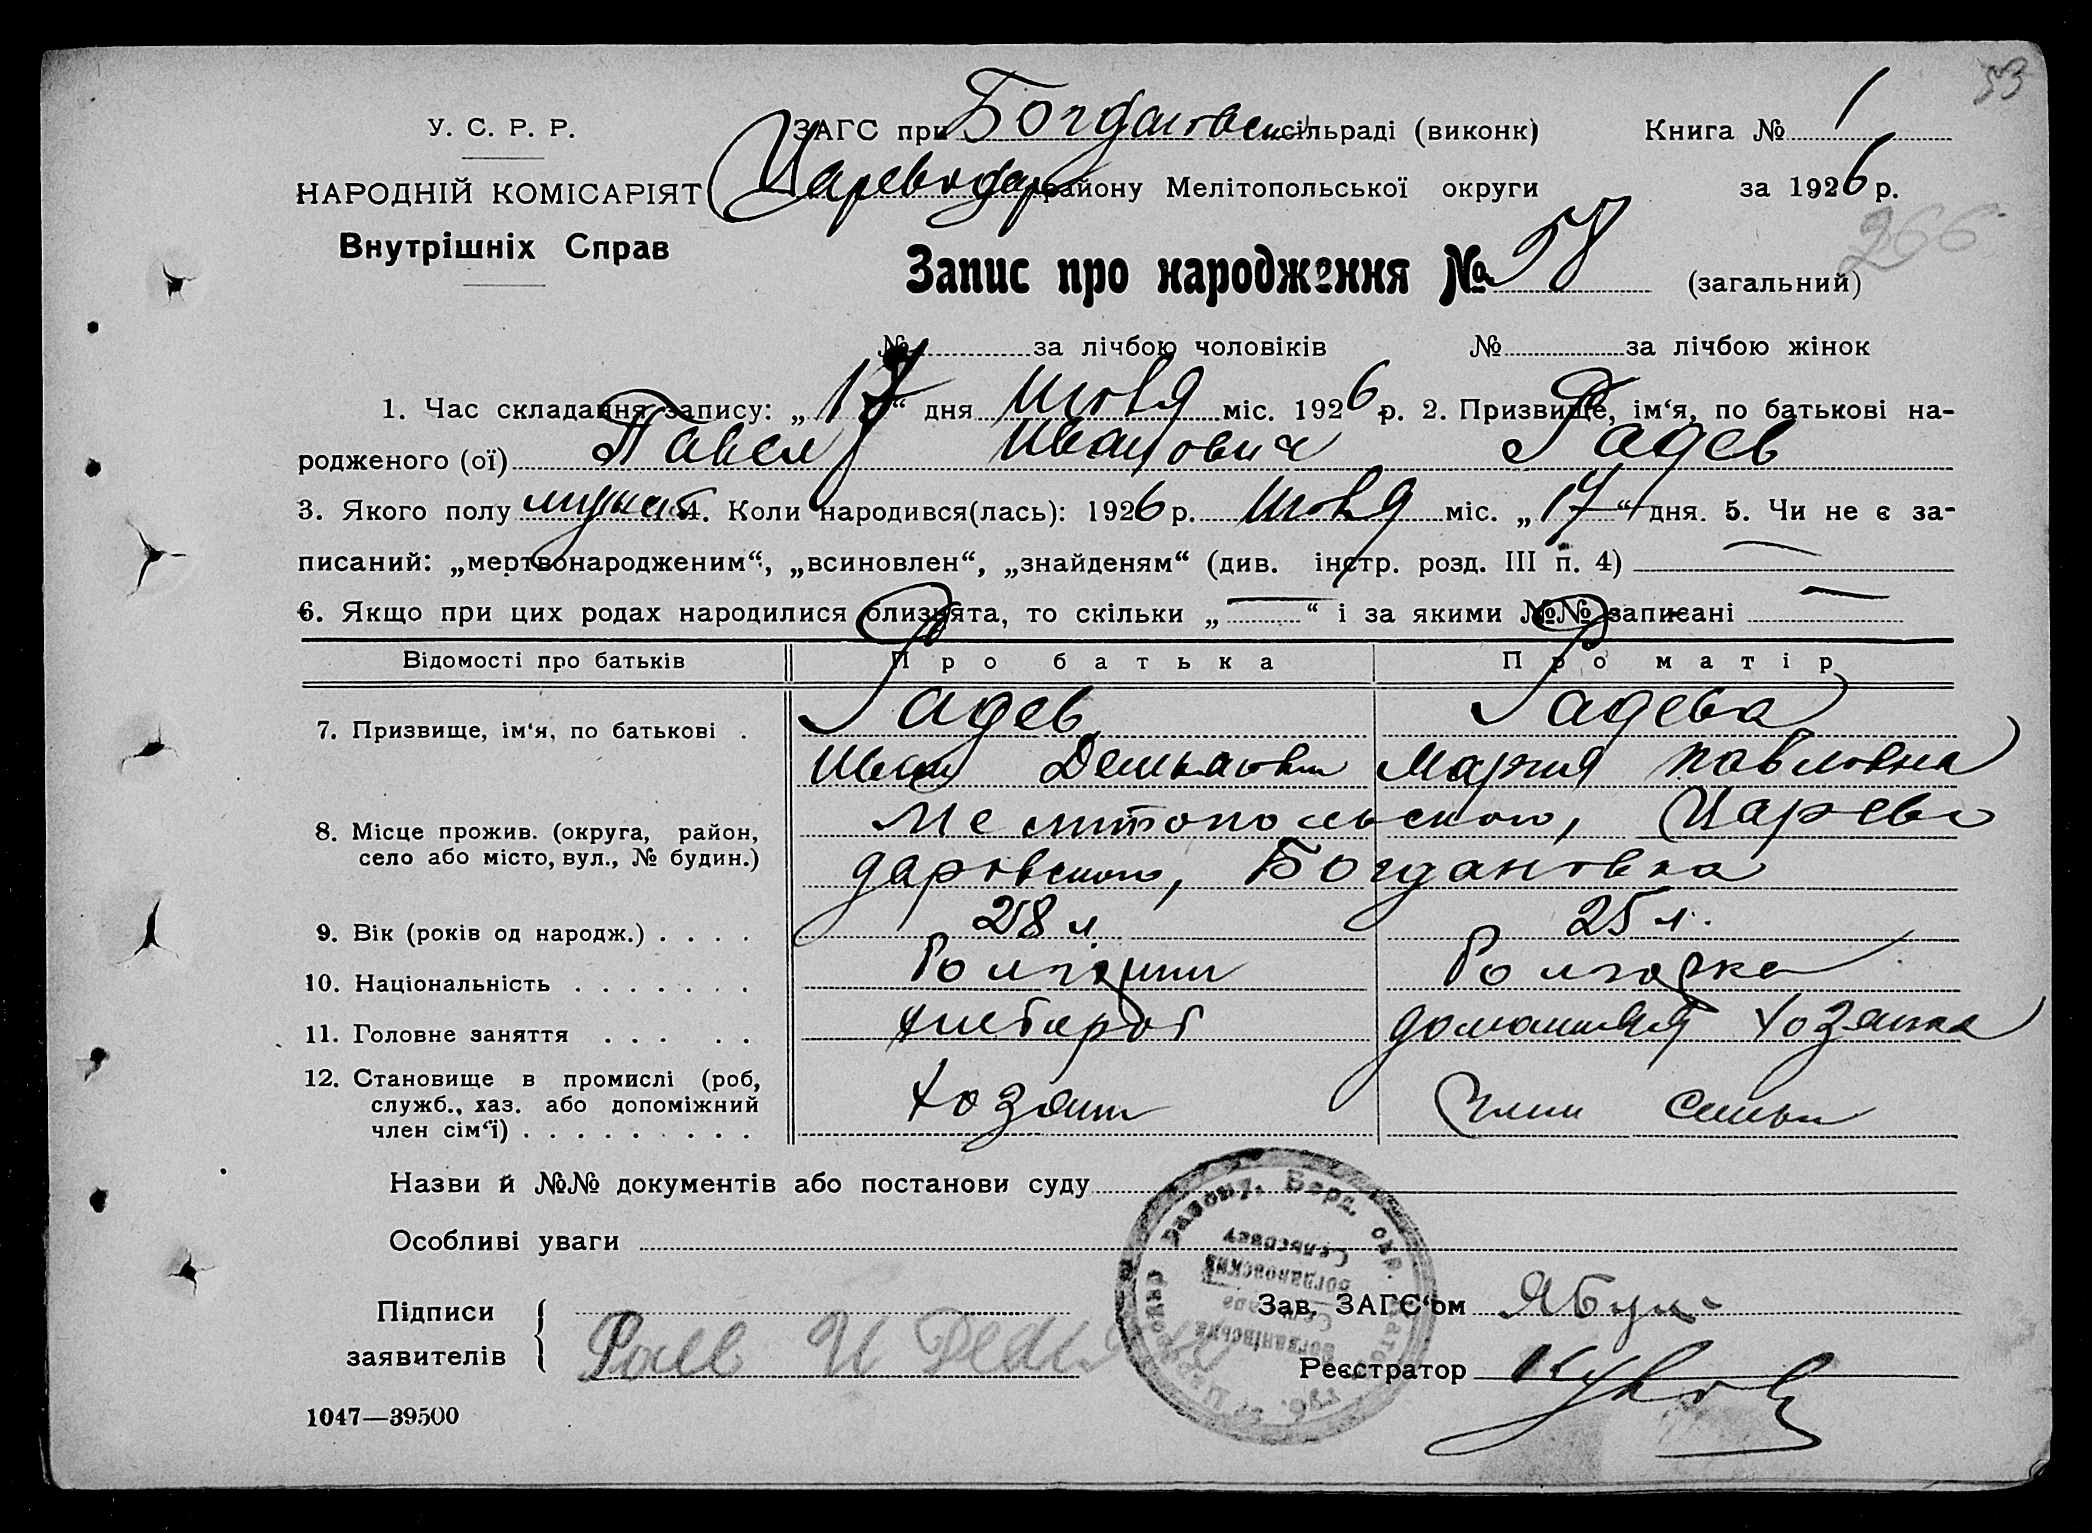 53
У. С. Р. Р.
НАРОДНІЙ КОМІСАРІЯТ
Внутрішніх Справ
ЗАГС при Богдановск сільраді (виконк)
Цареводар району Мелітопольської округи
Книга № 1
за 1926 р.
266
Запис про народження № 58 (загальний)
№ за лічбою чоловіків № за лічбою жінок
1. Час складання запису: „17“ дня Июля міс. 1926 р. 2. Призвище, ім‘я, по батькові на-
родженого (ої) Павел Иванович Радев
3. Якого полу мужск. 4. Коли народився(лась): 1926 р. Июля міс. „17“ дня. 5. Чи не є за-
писаний: „мертвонародженим“, „всиновлен“, „знайденям“ (див. інстр. розд. III п. 4) —
6. Якщо при цих родах народилися близнята, то скільки „—“ і за якими №№ записані —
Відомості про батьків Про батька Про матір
7. Призвище, ім‘я, по батькові . Радев Радева
Иван Демьянович Мария Павловна
8. Місце прожив. (округа, район,
село або місто, вул., № будин.)
Мелитопольского, Царево
даровского, Богдановка
9. Вік (років од народж.) . . . . 28 л. 25 л.
10. Національність . . . . . . . Болгарин Болгарка
11. Головне заняття . . . . . Хлебороб домашняя хозяйка
12. Становище в промислі (роб,
служб., хаз. або допоміжний
член сім‘ї) . . . . . . . . .
Хозяин Член семьи
Назви й №№ документів або постанови суду
Особливі уваги
Підписи
заявителів
Зав. ЗАГС‘ом
Реєстратор
району, Берд. окр.
Сельсовет
Богдановский
1047—39500